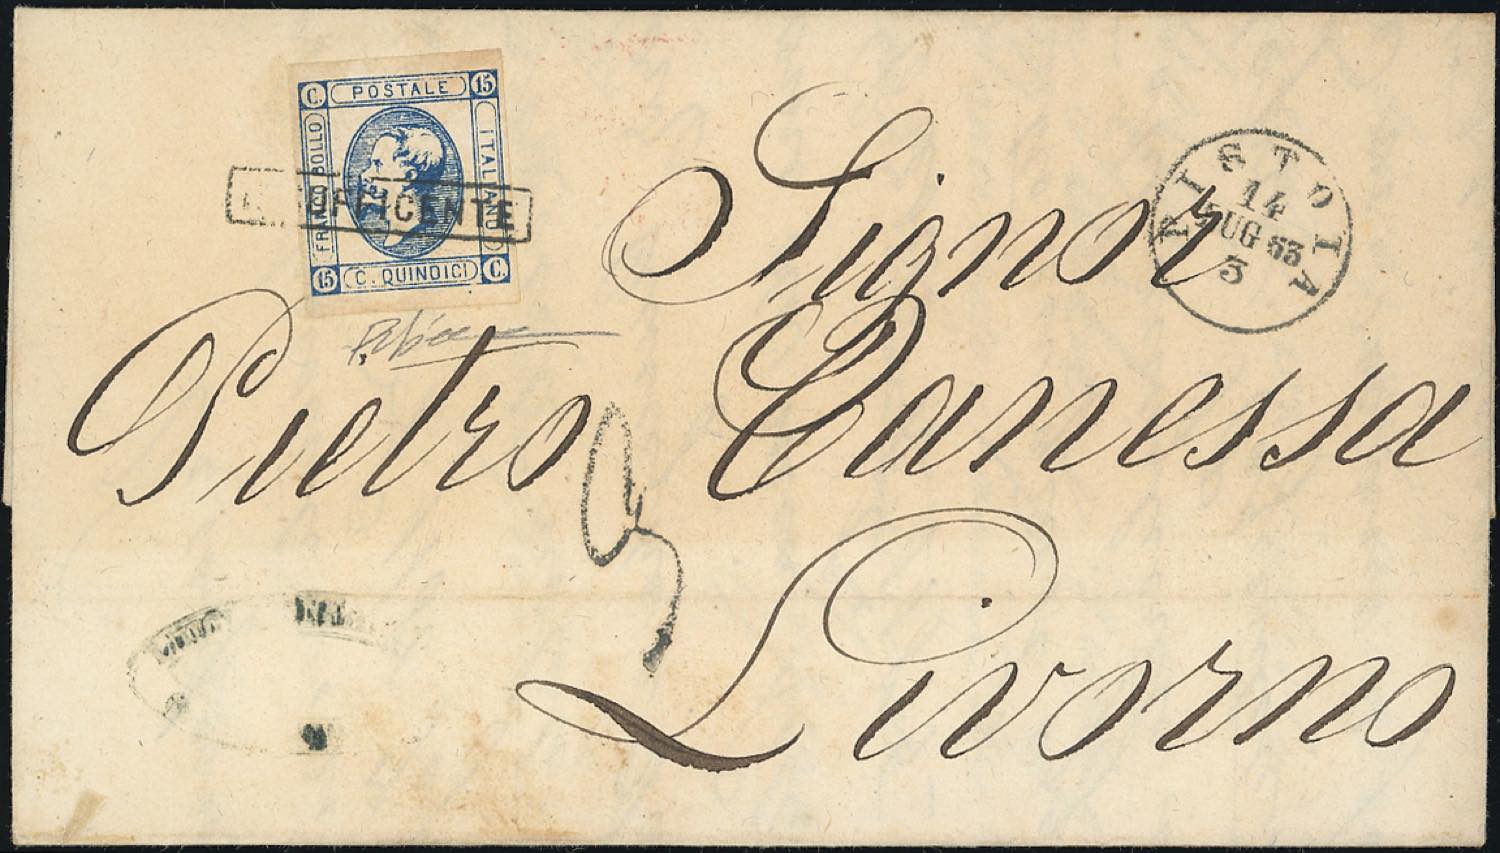 C. POSTALE 15
FRANCO BOLLO
ITALIANO
15 C. QUINDICI C.
PISTOIA
14
LUG 63
3
Signor
Pietro Canessa
Livorno